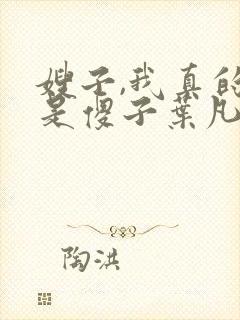 嫂子,我真的
是傻子葉凡
陶洪